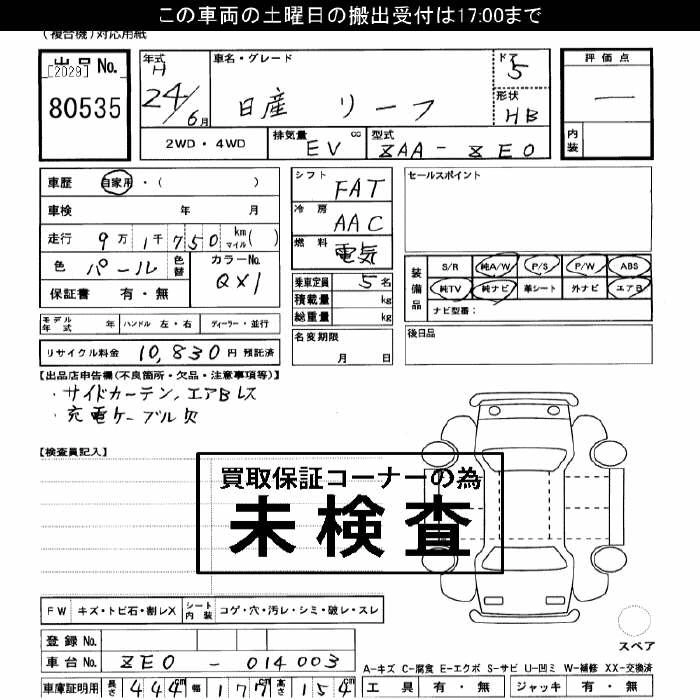 この車両の土曜日の搬出受付は17:00まで
(複合機)対応用紙
出品No.
[2029]
80535
年式 車名・グレード ドア 評価点
H 24/6月 日産 リーフ 5 —
形状 HB
内装
2WD・4WD 排気量 cc EV 型式 ZAA-ZE0
車歴 自家用・( )
車検 年 月
走行 9万1千750 km マイル( )
色 パール 色替 カラーNo. QX1
保証書 有・無
シフト FAT
冷房 AAC
燃料 電気
乗車定員 5名
積載量 kg
総重量 kg
セールスポイント
装備品
S/R 純A/W P/S P/W ABS
純TV 純ナビ 革シート 外ナビ エアB
ナビ型番:
モデル年式 年 ハンドル 左・右 ディーラー・並行
名変期限 月 日
後日品
リサイクル料金 10,830円 預託済
【出品店申告欄(不良箇所・欠品・注意事項等)】
・サイドカーテン,エアBレス
・充電ケーブル欠
【検査員記入】
買取保証コーナーの為
未検査
FW キズ・トビ石・割レX シート内装 コゲ・穴・汚レ・シミ・破レ・スレ
登録No.
車台No. ZE0-014003
スペア
A-キズ C-腐食 E-エクボ S-サビ U-凹ミ W-補修 XX-交換済
車庫証明用 長さ 444cm 幅 177cm 高さ 154cm 工具 有・無 ジャッキ 有・無